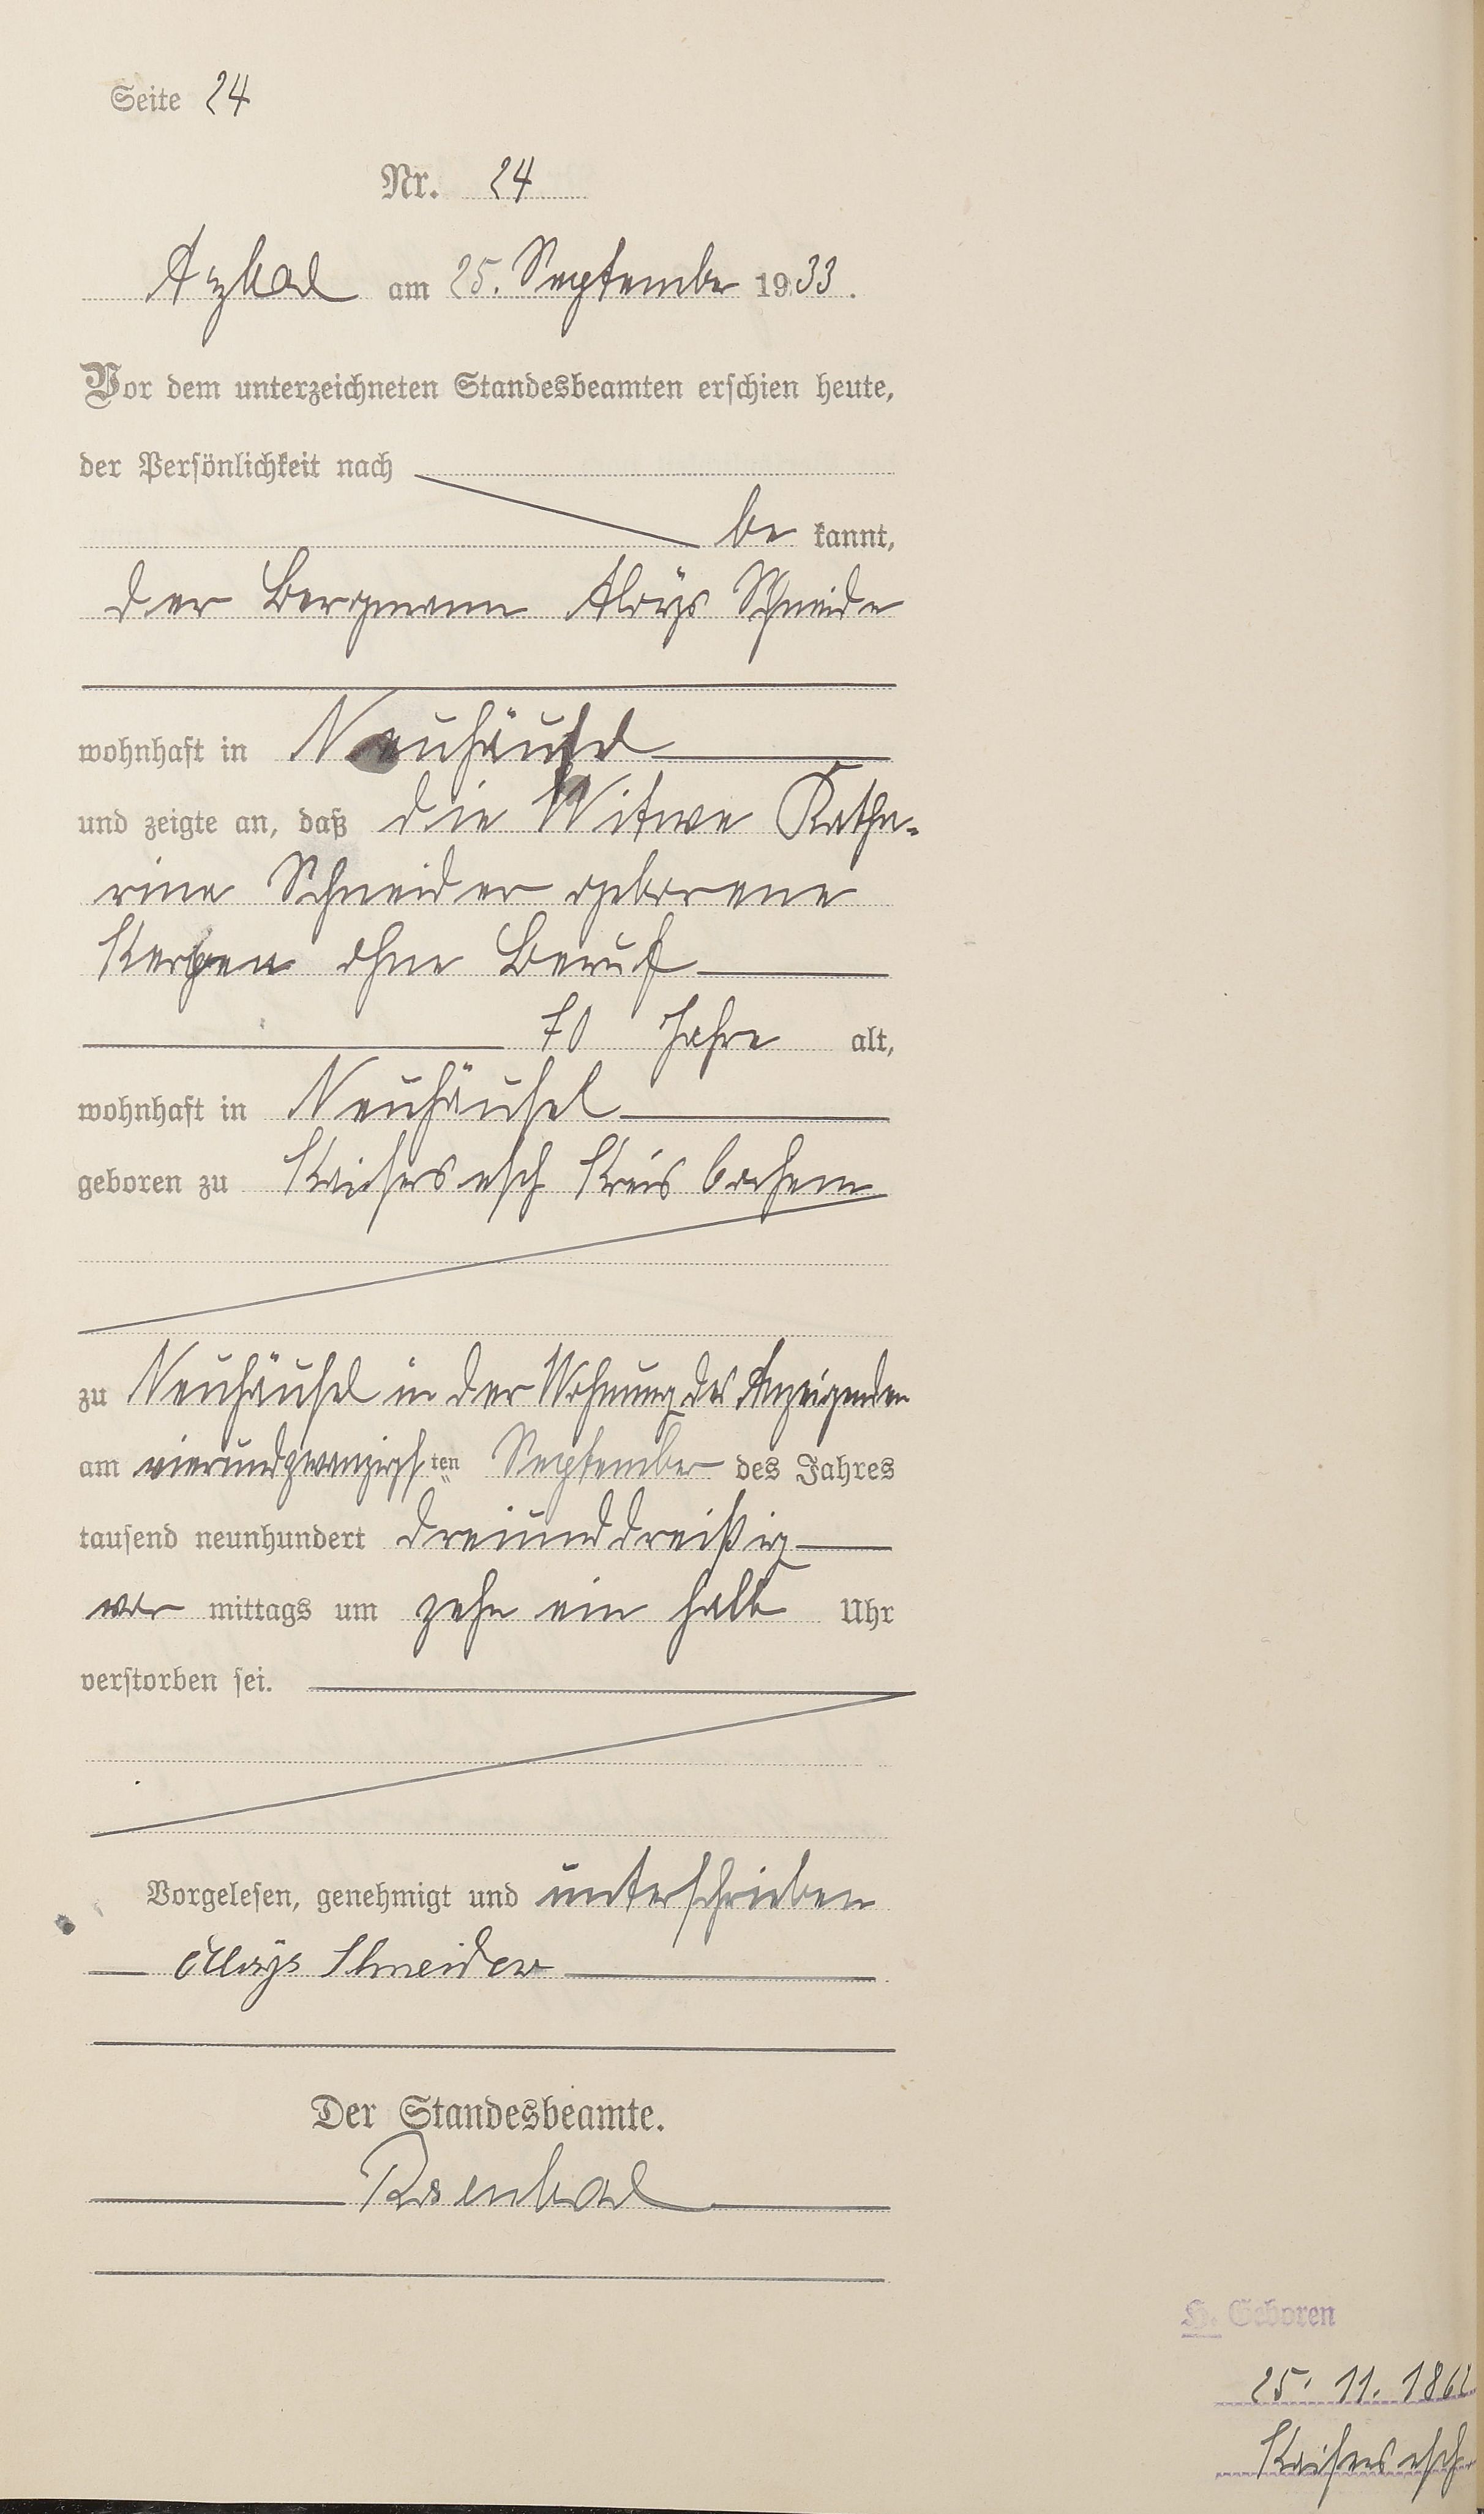 Seite 24
Nr. 24
Arzbach am 25. September 1933.
Vor dem unterzeichneten Standesbeamten erschien heute,
der Persönlichkeit nach
be kannt,
der Bergmann Aloÿs Schneider
wohnhaft in Neuhäusel
und zeigte an, daß die Witwe Katha-
rine Schneider geborene
Kerpen ohne Beruf
70 Jahre alt,
wohnhaft in Neuhäusel
geboren zu Kaisersesch Kreis Cochem
zu Neuhäusel in der Wohnung des Anzeigenden
am vierundzwanzigsten September des Jahres
tausend neunhundert dreiunddreißig
vor mittags um zehn ein halb Uhr
verstorben sei.
Vorgelesen, genehmigt und unterschrieben
Aloÿs Schneider
Der Standesbeamte.
H. Geboren
25. 11. 1862
Kaisersesch